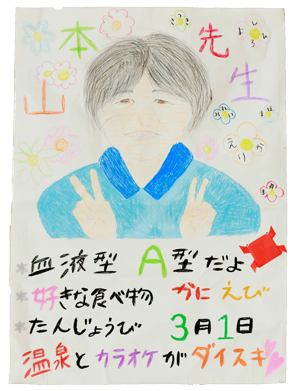 山本先生
えりか
＊血液型 A型だよ
＊好きな食べ物 かに えび
＊たんじょうび 3月1日
温泉とカラオケがダイスキ